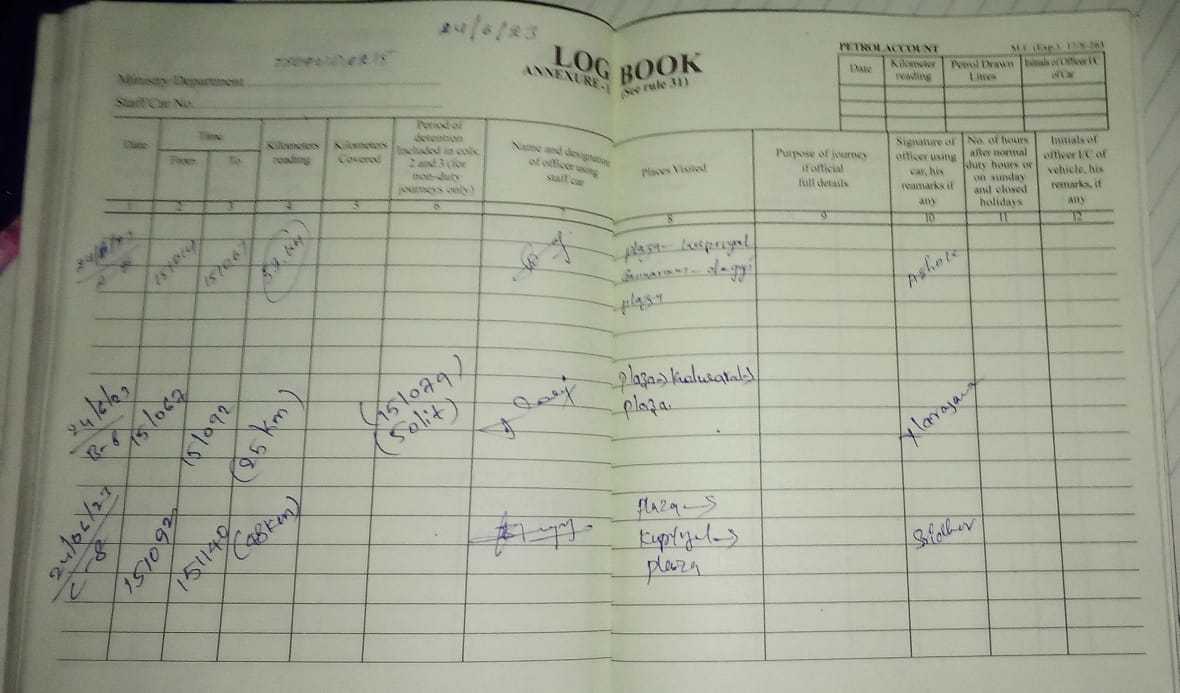 24/6/23
LOG BOOK
ANNEXURE-1 (See rule 31)
Ministry/Department
Staff/Car No.
PETROL ACCOUNT
Date Kilometer reading Petrol Drawn Litres Initials of Officer I/C of Car
Date
Time
From To
Kilometers reading
Kilometers Covered
Period of detention included in cols. 2 and 3 (for non-duty journeys only)
Name and designation of officer using staff car
Places Visited
Purpose of journey if official full details
Signature of officer using car, his reamarks if any
No. of hours after normal duty hours or on sunday and closed holidays
Initials of officer I/C of vehicle, his remarks, if any
1 2 3 4 5 6 7 8 9 10 11 12
151067
plaza
plaza
Ashok
24/6/23
B-8
151067
151092
(25 km)
(151079)
(50lit)
plaza
plaza.
24/06/23
C-8
151092
151140
(48km)
plaza →
plaza
Sridhar